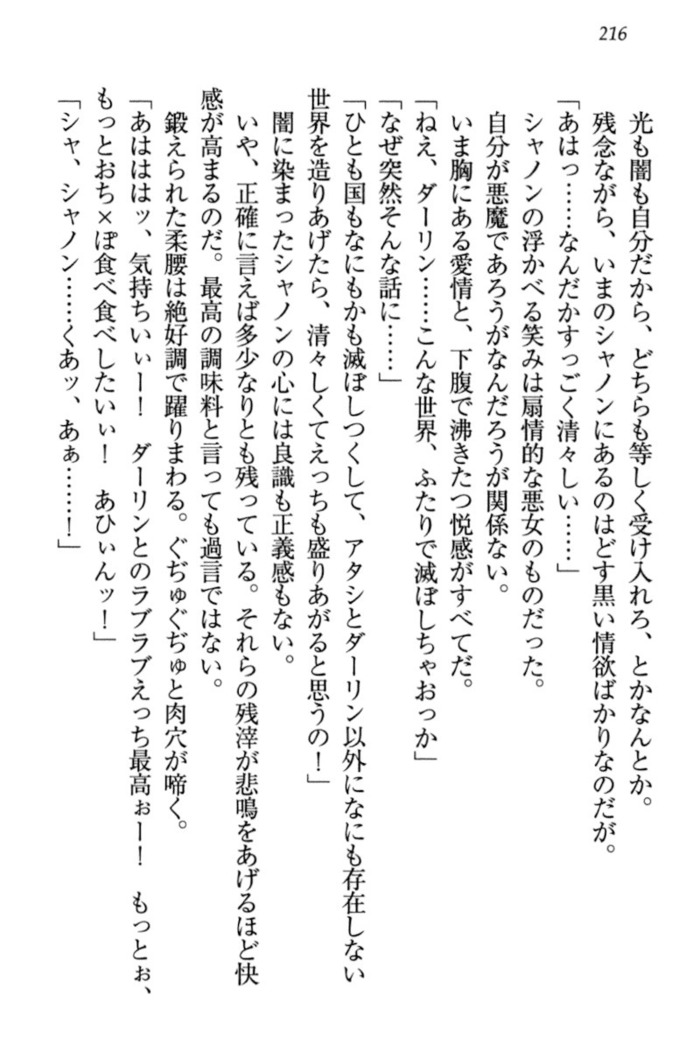 216
光も闇も自分だから、どちらも等しく受け入れろ、とかなんとか。
残念ながら、いまのシャノンにあるのはどす黒い情欲ばかりなのだが。
「あはっ……なんだかすっごく清々しい……」
シャノンの浮かべる笑みは扇情的な悪女のものだった。
自分が悪魔であろうがなんだろうが関係ない。
いま胸にある愛情と、下腹で沸きたつ悦感がすべてだ。
「ねえ、ダーリン……こんな世界、ふたりで滅ぼしちゃおっか」
「なぜ突然そんな話に……」
「ひとも国もなにもかも滅ぼしつくして、アタシとダーリン以外になにも存在しない
世界を造りあげたら、清々しくてえっちも盛りあがると思うの！」
闇に染まったシャノンの心には良識も正義感もない。
いや、正確に言えば多少なりとも残っている。それらの残滓が悲鳴をあげるほど快
感が高まるのだ。最高の調味料と言っても過言ではない。
鍛えられた柔腰は絶好調で躍りまわる。ぐぢゅぐぢゅと肉穴が啼く。
「あはははッ、気持ちいぃー！　ダーリンとのラブラブえっち最高ぉー！　もっとぉ、
もっとおち×ぽ食べ食べしたいぃ！　あひぃんッ！」
「シャ、シャノン……くあッ、あぁ……！」